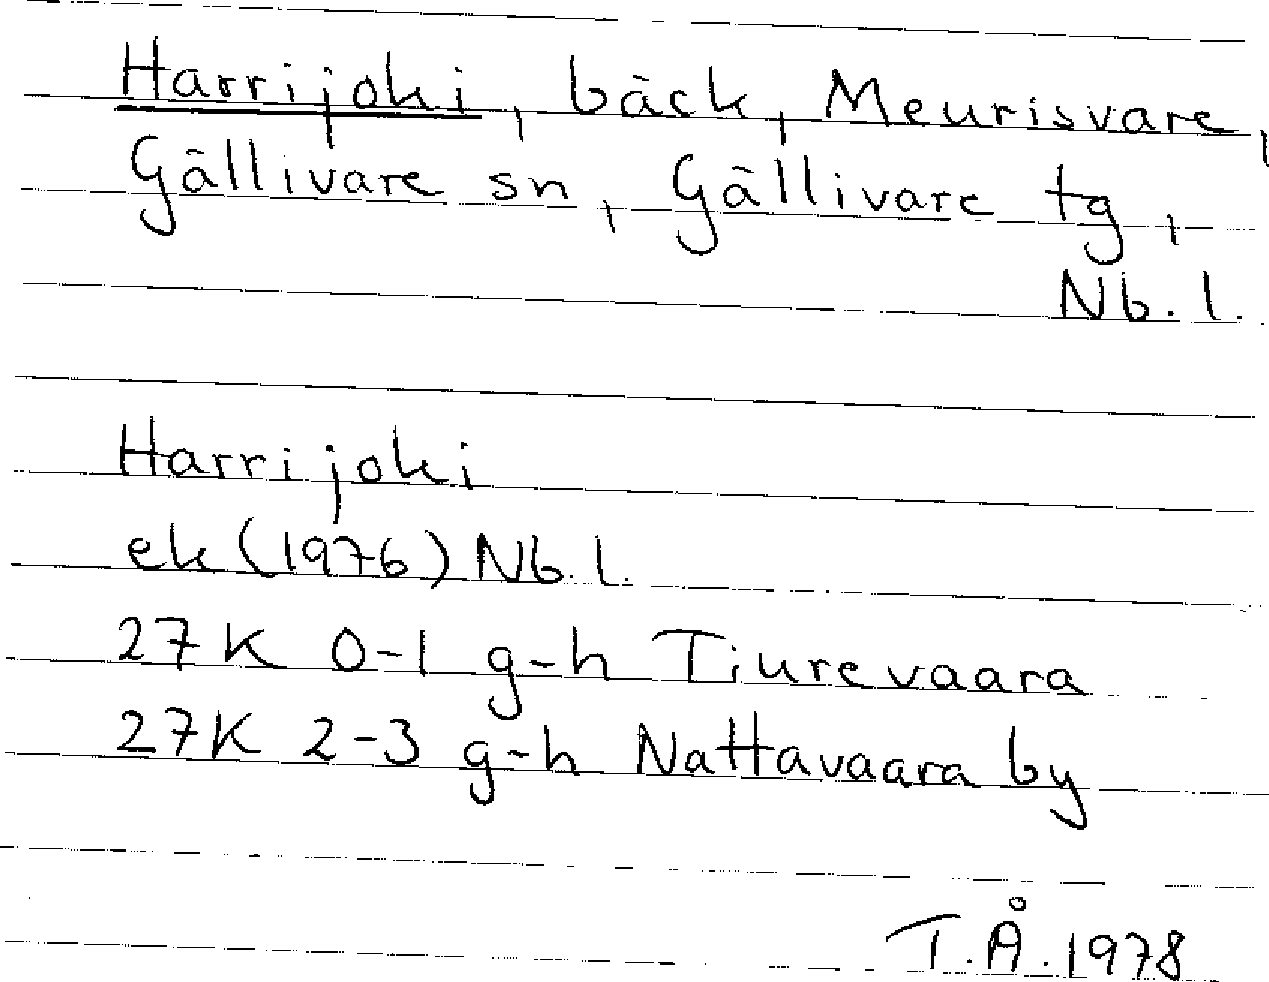 Harrijoki, bäck, Meurisvare,
Gällivare sn, Gällivare tg,
Nb. l.
Harrijoki
ek (1976) Nb. l.
27K 0-1 g-h Tiurevaara
27K 2-3 g-h Nattavaara by
T.Å. 1978